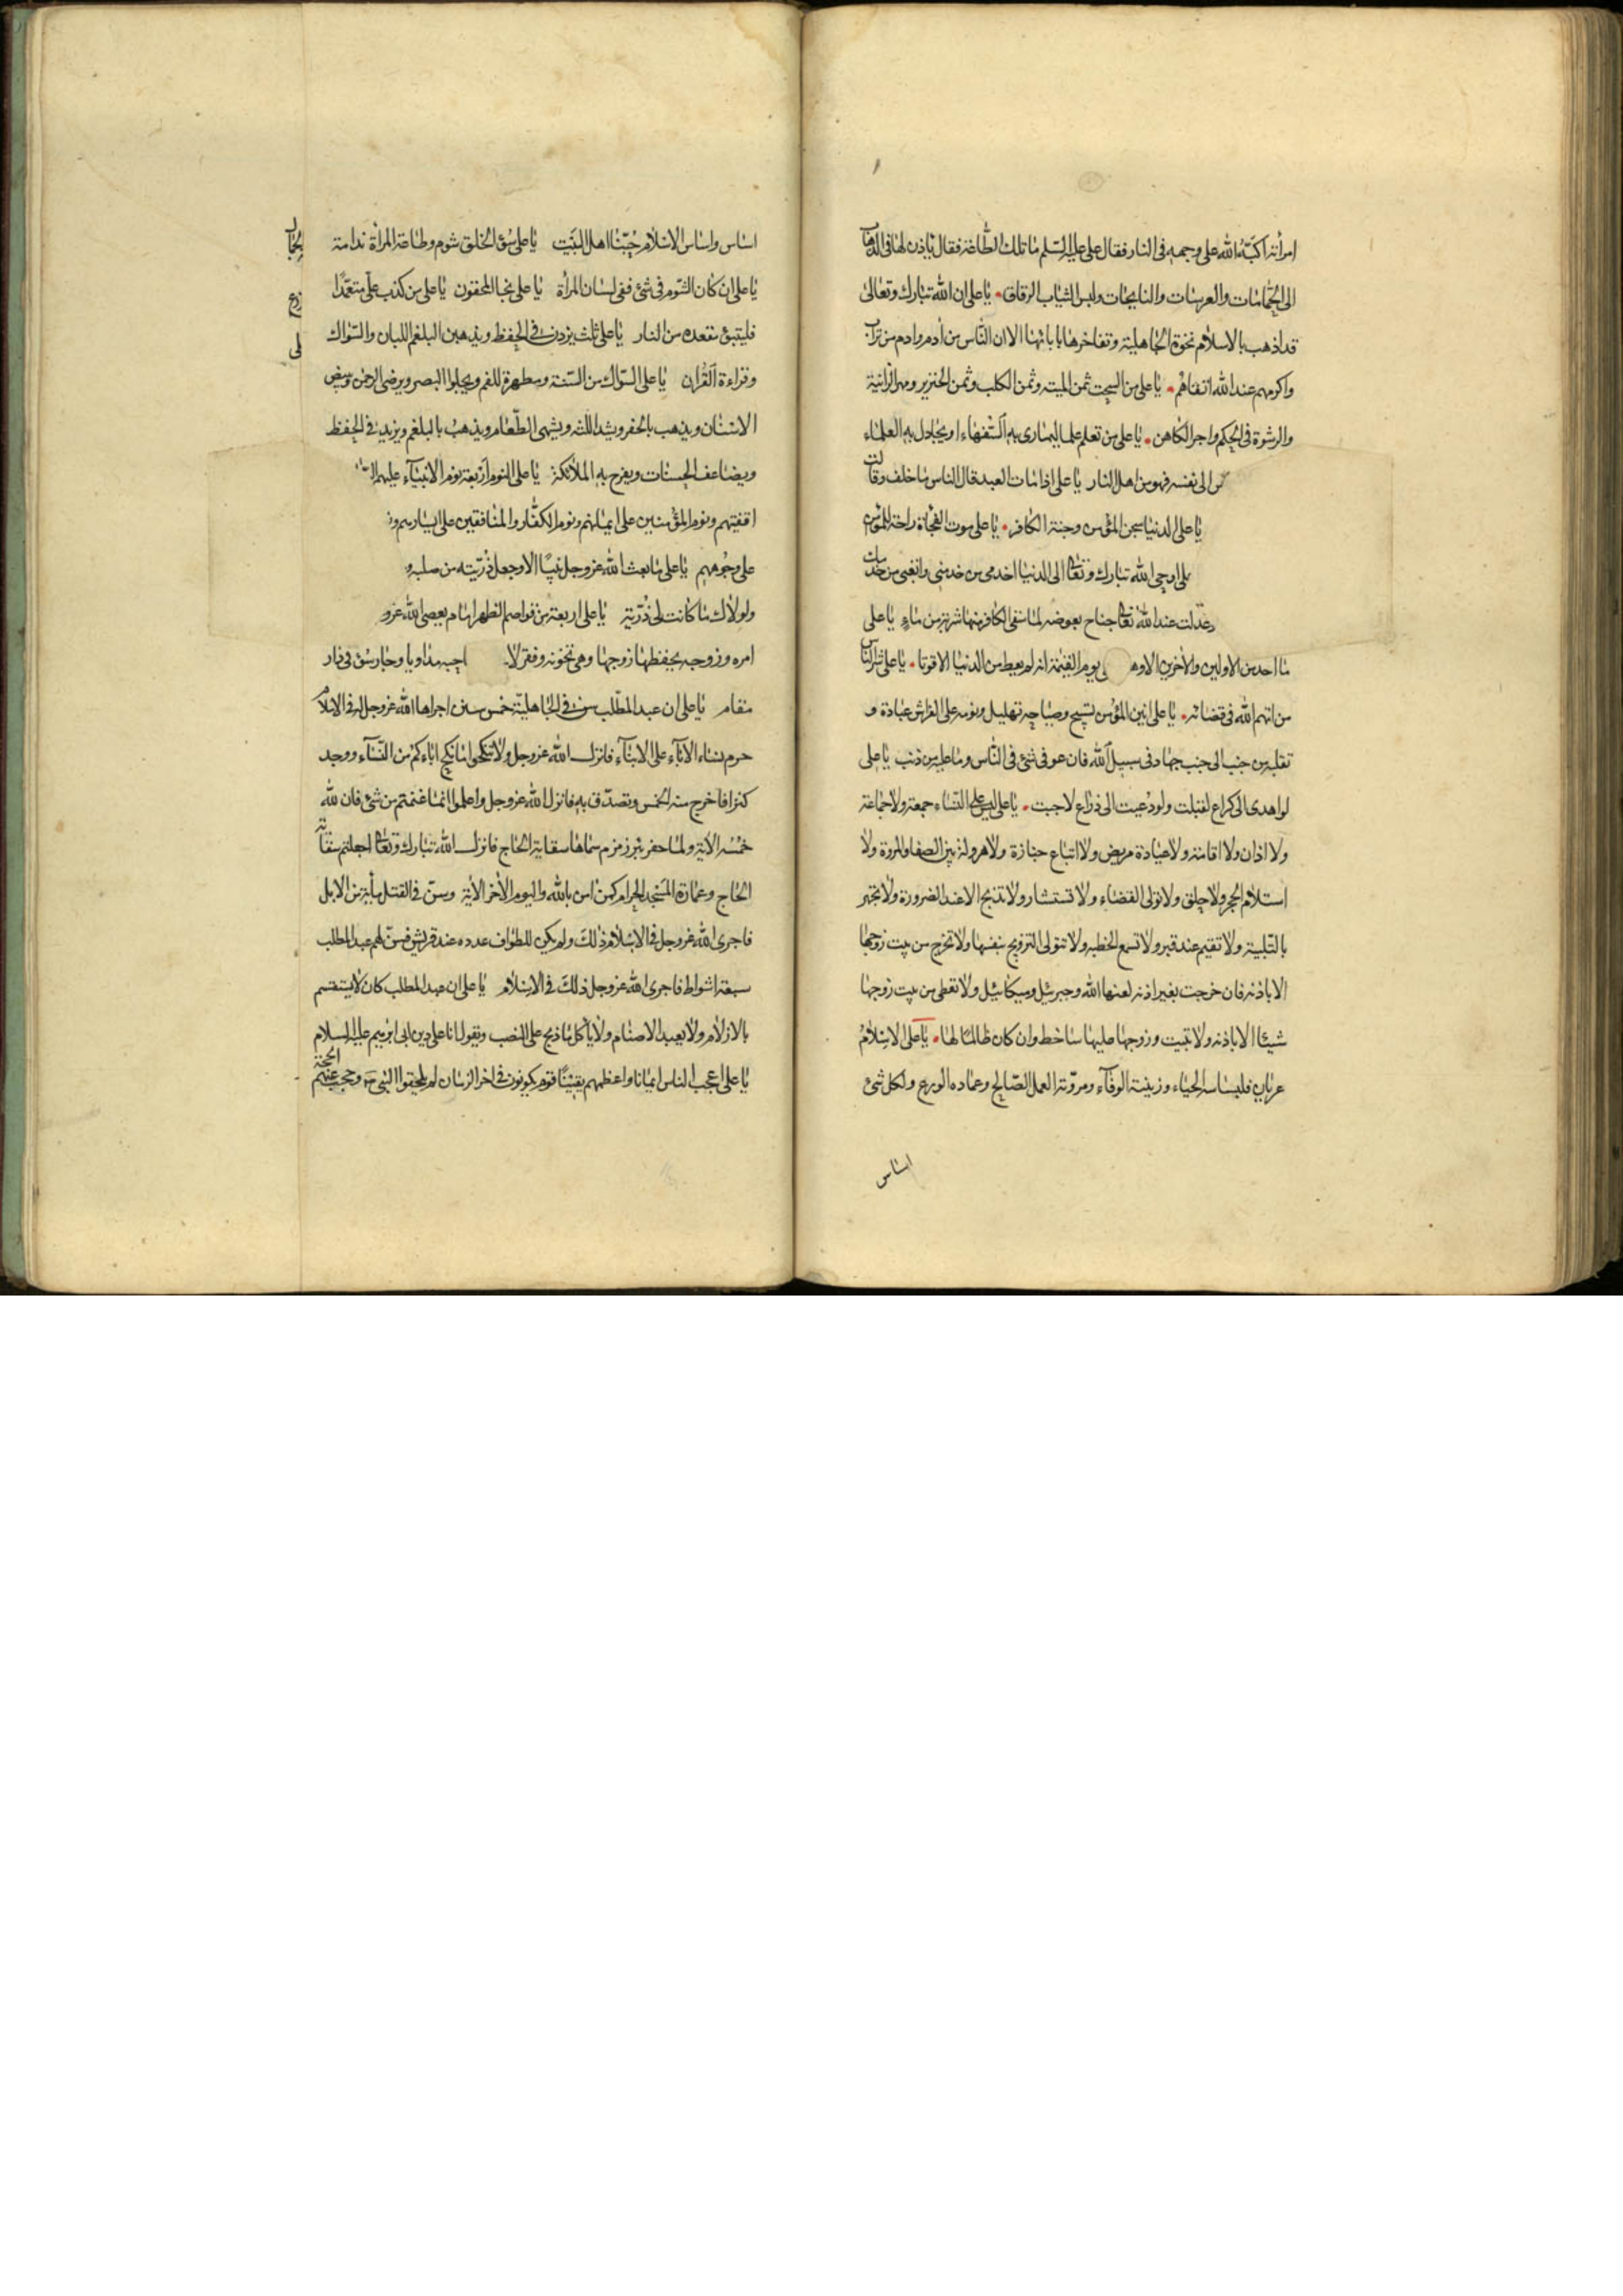 امرأته اكبّه الله على وجهه فى النار فقال على عليه السّلم ما تلك الطّاعة فقال ياذن لها فى الذهاب
الى الحمّامات والعرسات والنايحات ولبس الثياب الرقاق يا على ان الله تبارك وتعالى
قد اذهب بالاسلام نخوة الجاهلية وتفاخرها بابائها الا ان النّاس من ادم وادم من تراب
واكرمهم عند الله اتقاهم يا على من السحت ثمن الميته وثمن الكلب وثمن الخنزير ومهر الزانية
والرشوة فى الحكم واجر الكاهن يا على من تعلم علما ليمارى به السّفهاء او يجادل به العلماء
س الى نفسه فهو من اهل النار يا على اذا مات العبد قال الناس ما خلف وقالت
يا على الدنيا سجن المؤمن وجنة الكافر يا على موت الفجأة راحة للمؤمن
اوحى الله تبارك وتعالى الى الدنيا اخدمى من خدمنى واتعبى من خدمك
عدلت عند الله تعالى جناح بعوضه لما سقى الكافر منها شربة من ماء يا على
ما احد من الاولين والاخرين الا وهو يوم القيمة انه لم يعط من الدنيا الا قوتا يا على شر الناس
من اتهم الله فى قضائه يا على انين المؤمن تسبيح وصياحه تهليل ونومه على الفراش عبادة و
تقلبه من جنب الى جنب جهاد فى سبيل الله فان عوفى مشى فى النّاس وما عليه من ذنب يا على
لو اهدى الى كراع لقبلت ولو دعيت الى ذراع لاجبت يا على ليس على النساء جمعة ولا جماعة
ولا اذان ولا اقامة ولا عيادة مريض ولا اتباع جنازة ولا هرولة بين الصفا والمروة ولا
استلام الحجر ولا حلق ولا تولى القضاء ولا تستشار ولا تذبح الا عند الضرورة ولا تجهر
بالتّلبية ولا تقيم عند قبر ولا تسمع الخطبه ولا تتولى التزويج بنفسها ولا تخرج من بيت زوجها
الا باذنه فان خرجت بغير اذنه لعنها الله وجبرئيل وميكائيل ولا تعطى من بيت زوجها
شيئا الا باذنه ولا تبيت وزوجها عليها ساخط وان كان ظالمًا لها يا على الاسلام
عريان فلباسه الحياء وزينته الوفآء ومروّته العمل الصّالح وعماده الورع ولكل شئ
اساس
اساس واساس الاسلام حُبّنا اهل البيت يا على سوء الخلق شوم وطاعة المرأة ندامة
يا على ان كان الشوم فى شئ ففى لسان المرأة يا على نجا المخفون يا على من كذب علىّ متعمّدًا
فليتبؤ مقعده من النار يا على ثلث يزدن فى الحفظ ويذهبن البلغم اللبان والسّواك
وقراءة القُران يا على السّواك من السّنة ومطهرة للفم ويجلوا البصر ويرضى الرحمن ويبيض
الاسنان ويذهب بالحفر ويشد اللثه ويشهى الطّعام ويذهب بالبلغم ويزيد فى الحفظ
ويضاعف الحسنات ويفرح به الملائكة يا على النوم اربعة نوم الانبيآء عليهم
اقفيتهم ونوم المؤمنين على ايمانهم ونوم الكفّار والمنافقين على ايسارهم
على وجوههم يا على ما بعث الله عزوجل نبيّا الا وجعل ذُرّيته من صلبه
ولولاك ما كانت لى ذُرّية يا على اربعة من قواصم الظهر امام يعصى الله عز و
امره وزوجه يحفظها زوجها وهى تخونه وفقر لا صاحبه مداويا وجار سؤ فى دار
مقام يا على ان عبد المطّلب سن فى الجاهليّة خمس سنن اجراها الله عزوجل له فى الاسلام
حرم نساء الآباء على الابنآء فانزل الله عزوجل ولا تنكحوا ما نكح اباءكم من النّسآء ووجد
كنزا فاخرج منه الخمس وتصدّق به فانزل الله عزوجل واعلموا انما غنمتم من شئ فان لله
خمسه الآية ولما حفر بئر زمزم سماها سقاية الحاج فانزل الله تبارك وتعالى اجعلتم سقاية
الحاج وعمارة المسجد الحرام كمن امن بالله واليوم الآخر الاية وسن فى القتل مأية من الابل
فاجرى الله عزوجل فى الاسلام ذلك ولم يكن للطواف عدده عند قريش فسن لهم عبد المطلب
سبعة اشواط فاجرى الله عزوجل ذلك فى الاسلام يا على ان عبد المطلب كان لا يستقسم
بالازلام ولا يعبد الاصنام ولا يأكل ما ذبح على النصب ويقول انا على دين ابى ابرهيم عليه السلام
يا على اعجب الناس ايمانا واعظمهم يقينًا قوم يكونون فى اخر الزمان لم يلحقوا النبى وحجب عنهم الحجة